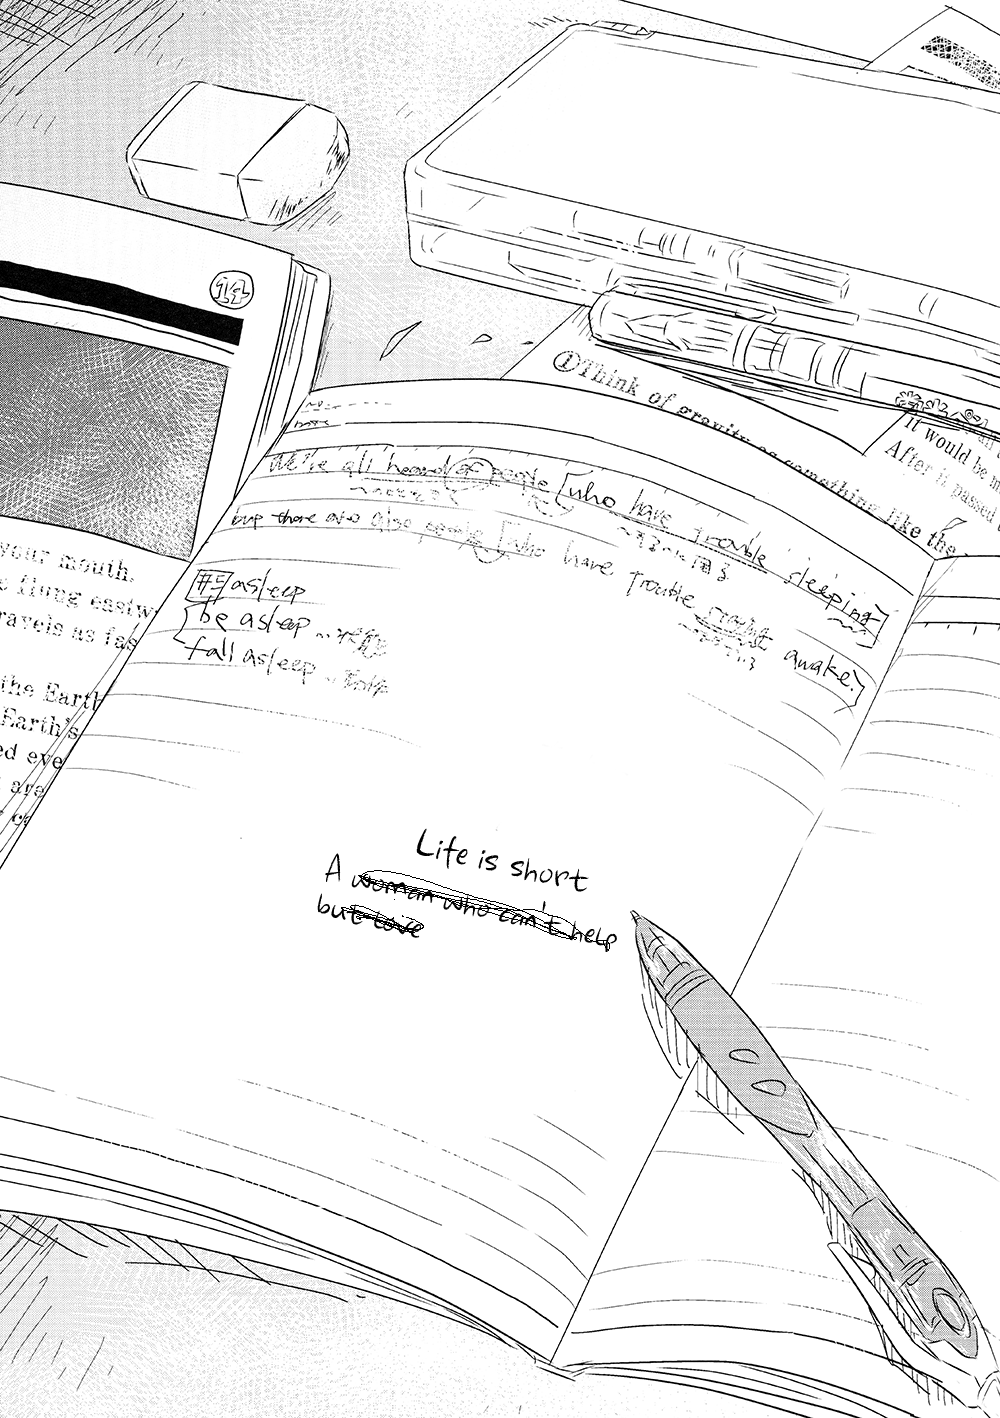 We're all heard of people [who have trouble sleeping]
but there are also people [who have trouble awake.]
#5 asleep
be asleep
fall asleep
Life is short
A woman who can't help
but love
①Think of gravity as something like the
it would be m
After it passed
your mouth.
e flung eastw
ravels as fas
the Earth
Earth's
ed eve
are